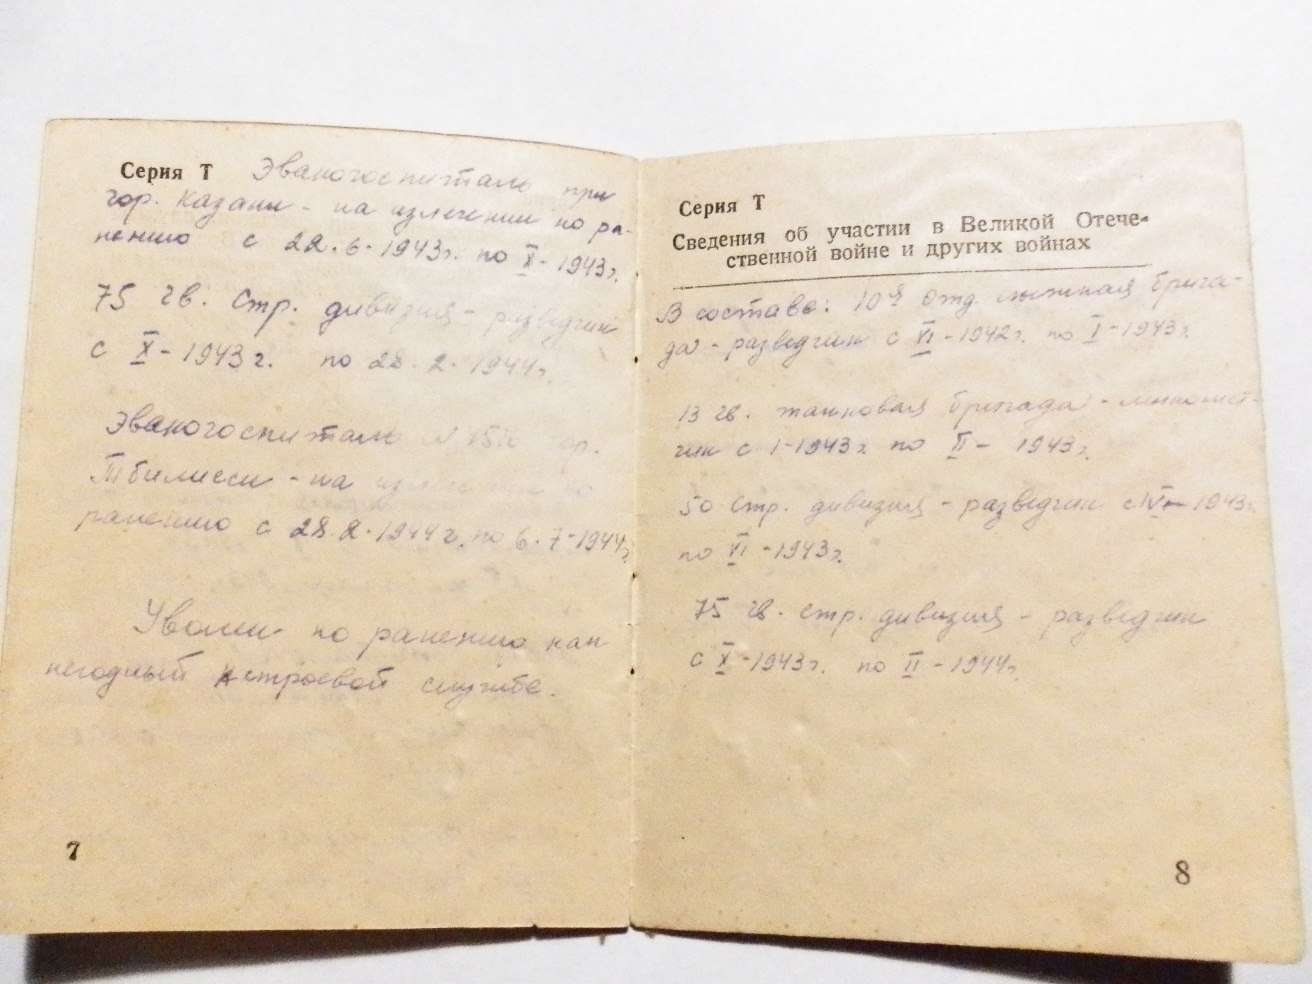 Серия Т Эвакогоспиталь при
гор. Казани - на излечении по ра-
нению с 22.6-1943г. по X-1943г.
75 гв. Стр. дивизия - разведчик
с X-1943г. по 28.2.1944г.
Эвакогоспиталь гор.
Тбилисси - на излечении по
ранению с 28.2.1944г. по 6.7-1944г.
Уволен по ранению как
негодный к строевой службе.
7
Серия Т
Сведения об участии в Великой Отече-
ственной войне и других войнах
В составе: 10й Отд. лыжная брига-
да - разведчик с VI-1942г. по I-1943г.
13 гв. танковая бригада - миномет-
чик с I-1943г. по II-1943г.
50 стр. дивизия - разведчик с IV-1943г.
по VI-1943г.
75 гв. стр. дивизия - разведчик
с X-1943г. по II-1944г.
8